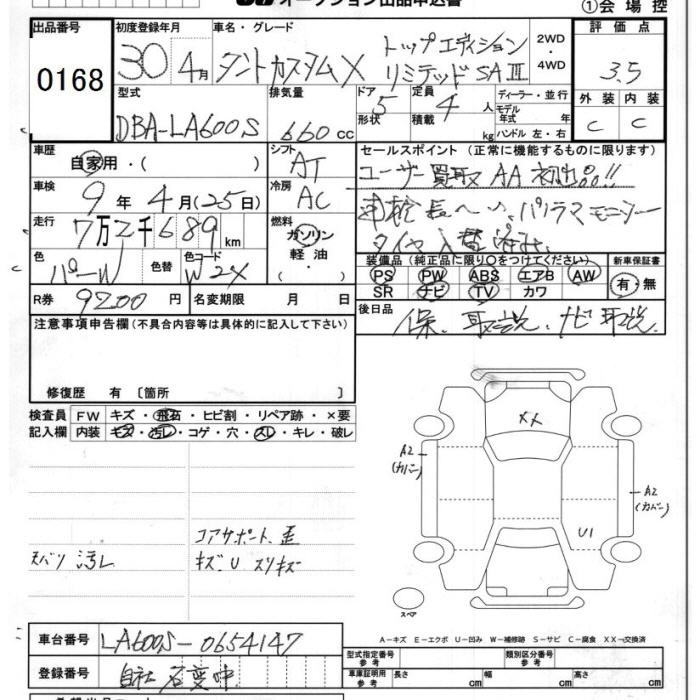 オークション出品申込書
①会場控
出品番号
0168
初度登録年月
30 4月
車名・グレード
タントカスタムX
トップエディション
リミテッド SAⅢ
2WD
・
4WD
評価点
3.5
外装 内装
C C
型式
DBA-LA600S
排気量
660 cc
ドア 5
形状
定員 4 人
積載 kg
ディーラー・並行
モデル
年式 年
ハンドル 左・右
車歴
自家用・( )
シフト
AT
セールスポイント (正常に機能するものに限ります)
ユーザー買取 AA初出品!!
車検
9年 4月(25日)
冷房
AC
パノラマモニター
走行
7万2千689 km
燃料
ガソリン
軽油
・
タイヤ入替済み.
色
パールW
色替
色コード
W24
装備品 (純正品に限り○をつけてください)
PS PW ABS エアB AW
SR ナビ TV カワ
新車保証書
有・無
R券 9200 円
名変期限 月 日
後日品
保、取説、ナビ取説
注意事項申告欄(不具合内容等は具体的に記入して下さい)
修復歴 有 〔箇所 〕
検査員
記入欄
FW キズ・飛石・ヒビ割・リペア跡・×要
内装 キズ・汚レ・コゲ・穴・スレ・キレ・破レ
XX
A2
(カバー)
A2
(カバー)
U1
コアサポート歪
汚レ
キズ.U スリキズ
スペア
A-キズ E-エクボ U-凹み W-補修跡 S-サビ C-腐食 XX-交換済
車台番号 LA600S-0654147
登録番号 自社名変中
型式指定番号
参考
類別区分番号
参考
車庫証明用
参考
長さ cm 幅 cm 高さ cm